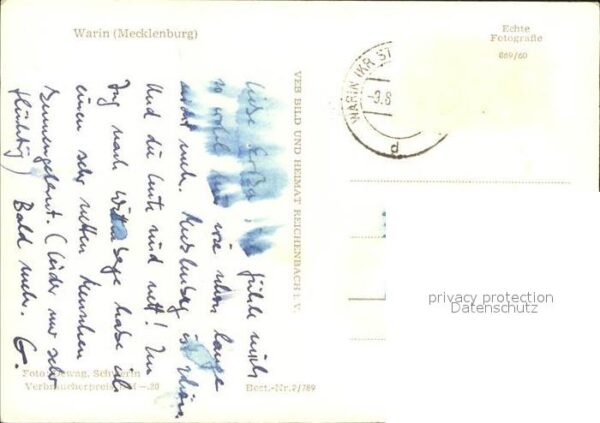 Warin (Mecklenburg)
Echte
Fotografie
669/60
WARIN (KR. ST
-9.8
d
VEB BILD UND HEIMAT REICHENBACH i. V.
Liebe Erika! fühle mich
so wohl hier wie schon lange
nicht mehr. Mecklenburg ist schön
Und die Leute sind nett! Im
Zug nach Wittenberge habe ich
einen sehr netten Menschen
kennengelernt. (Leider nur sehr
flüchtig) Bald mehr. G.
Foto: Dewag, Schwerin
Verbraucherpreis -.20
Best.-Nr. 2/789
privacy protection
Datenschutz